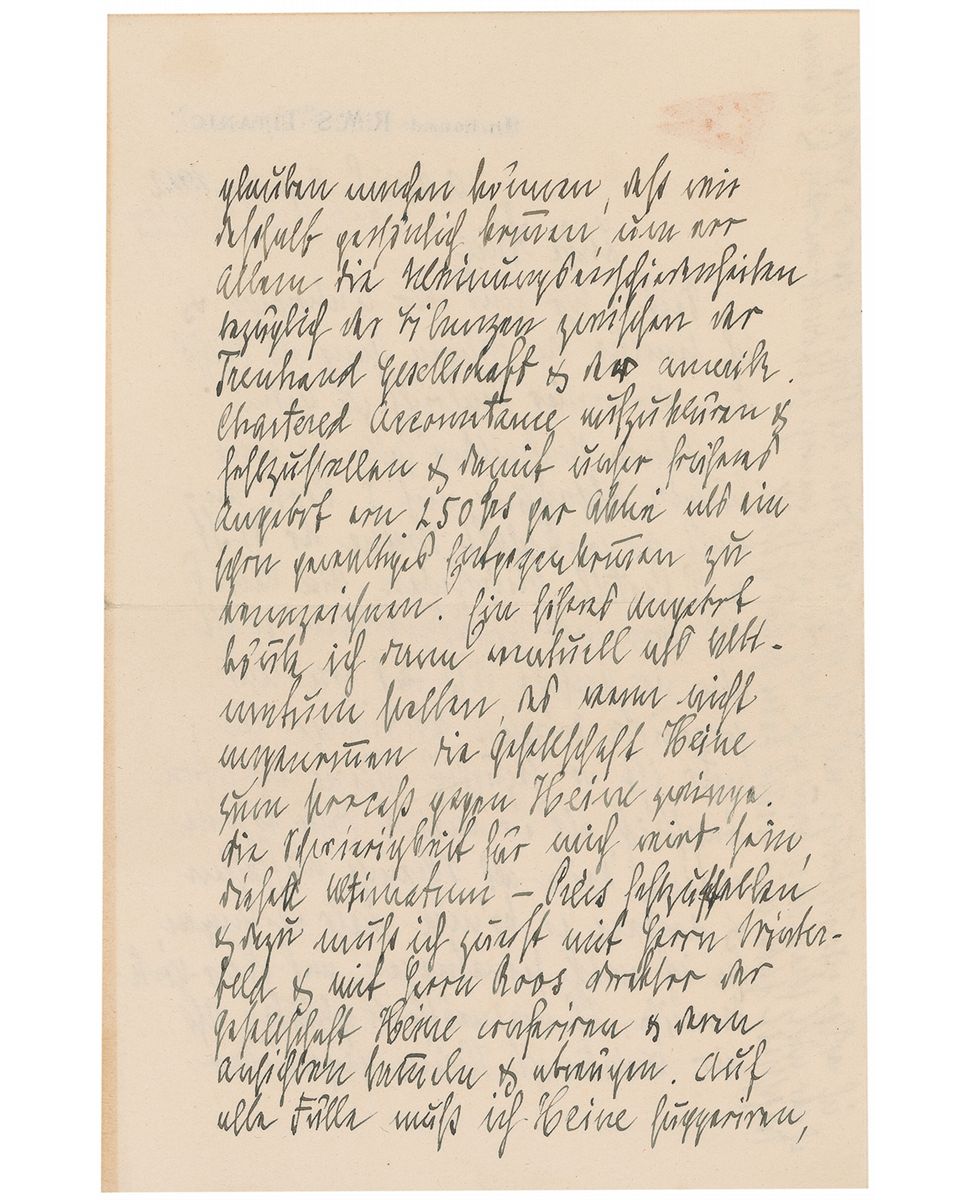 On board R.M.S. "TITANIC"
glauben machen können, daß wir
deshalb persönlich kom̄en, um vor
Allem die Meinungsverschiedenheiten
bezüglich der Bilanzen zwischen der
Treuhand Gesellschaft & der amerik.
Chartered Accountance aufzuklären &
festzustellen & damit unser früheres
Angebot von 250 frs per Aktie als ein
schon gewaltiges Entgegenkom̄en zu
kennzeichnen. Ein höheres Angebot
könnte ich dann eventuell als Ulti-
matum stellen, das wenn nicht
angenom̄en die Gesellschaft Heine
zum Process gegen Heine zwinge.
Die Schwierigkeit für mich wird sein,
dieses Ultimatum – Preis festzustellen,
& dazu muß ich zuerst mit Herrn Winter-
feld & mit Herrn Roos Direktor der
Gesellschaft Heine conferiren & deren
Ansichten sam̄eln & abwägen. Auf
alle Fälle muß ich Heine suggeriren,